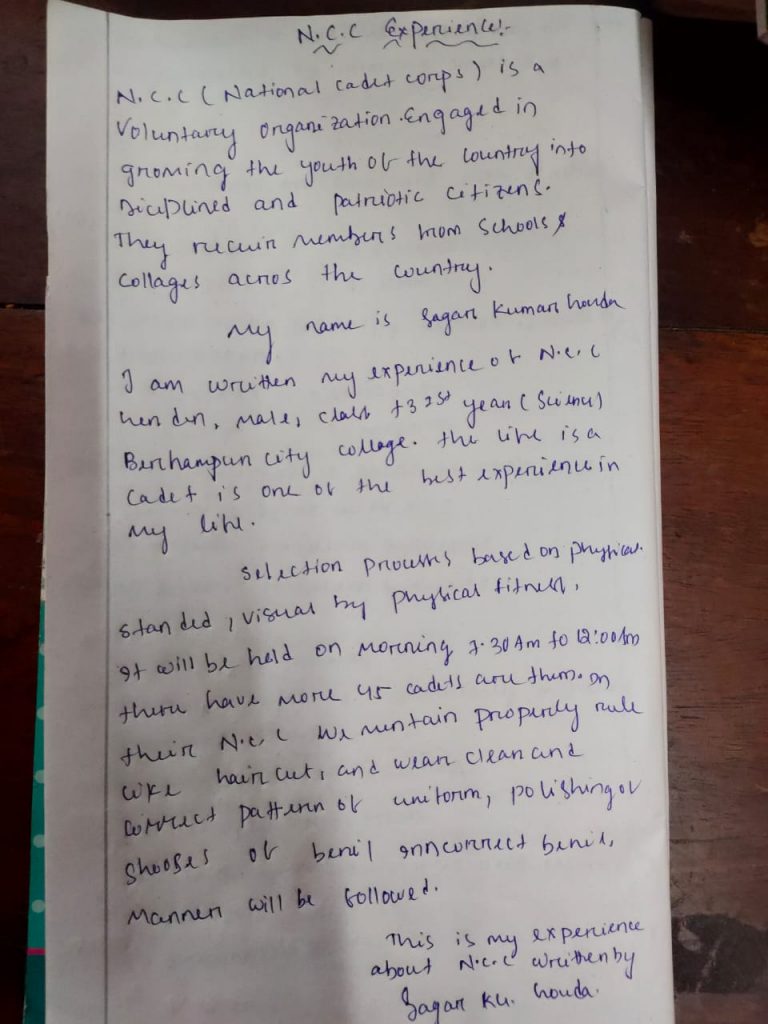 N.C.C Experience:-
N.C.C (National cadet corps) is a
Voluntary organization. Engaged in
groming the youth of the country into
Diciplined and patriotic citizens.
They recuir members from Schools &
collages across the country.
My name is Sagar Kumar Gouda
I am written my experience of N.C.C
male, class +3 1st year (Science)
Berhampur city collage. the life is a
Cadet is one of the best experience in
my life.
Selection process based on physical
standed, visual by physical fitness,
It will be held on Morning 7.30Am to 12:00Am
there have more 45 cadets are them. In
their N.C.C We mentain properly rule
Like hair cut, and wear clean and
correct pattern of uniform, polishing of
Shooses of
Manner will be followed.
This is my experience
about N.C.C writtenby
Sagar Ku. Gouda.